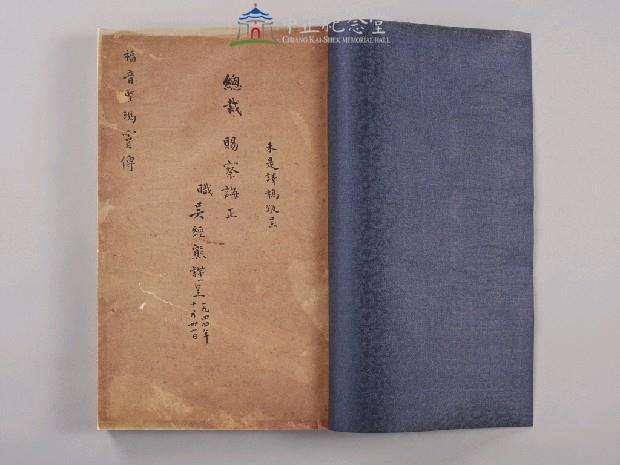 中正紀念堂
CHIANG KAI-SHEK MEMORIAL HALL
未是譯稿敬呈
總裁 賜察誨正
職吳經熊謹呈
一九四四年
十月廿一日
福音聖瑪竇傳